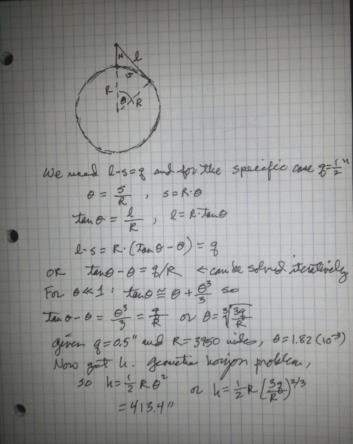 H
l
s
R
θ
R
We need l-s=q and for the specific case q=1/2"
θ = s/R , s=R·θ
tanθ = l/R , l=R·tanθ
l-s = R·(tanθ-θ) = q
OR tanθ-θ = q/R ← can be solved iteratively
For θ≪1: tanθ ≅ θ + θ³/3 so
tanθ-θ = θ³/3 = q/R or θ = ∛(3q/R)
given q=0.5" and R=3950 miles, θ=1.82(10⁻³)
Now get h. geometric horizon problem,
so h=½Rθ² or h=½R(3q/R)^2/3
=413.4"